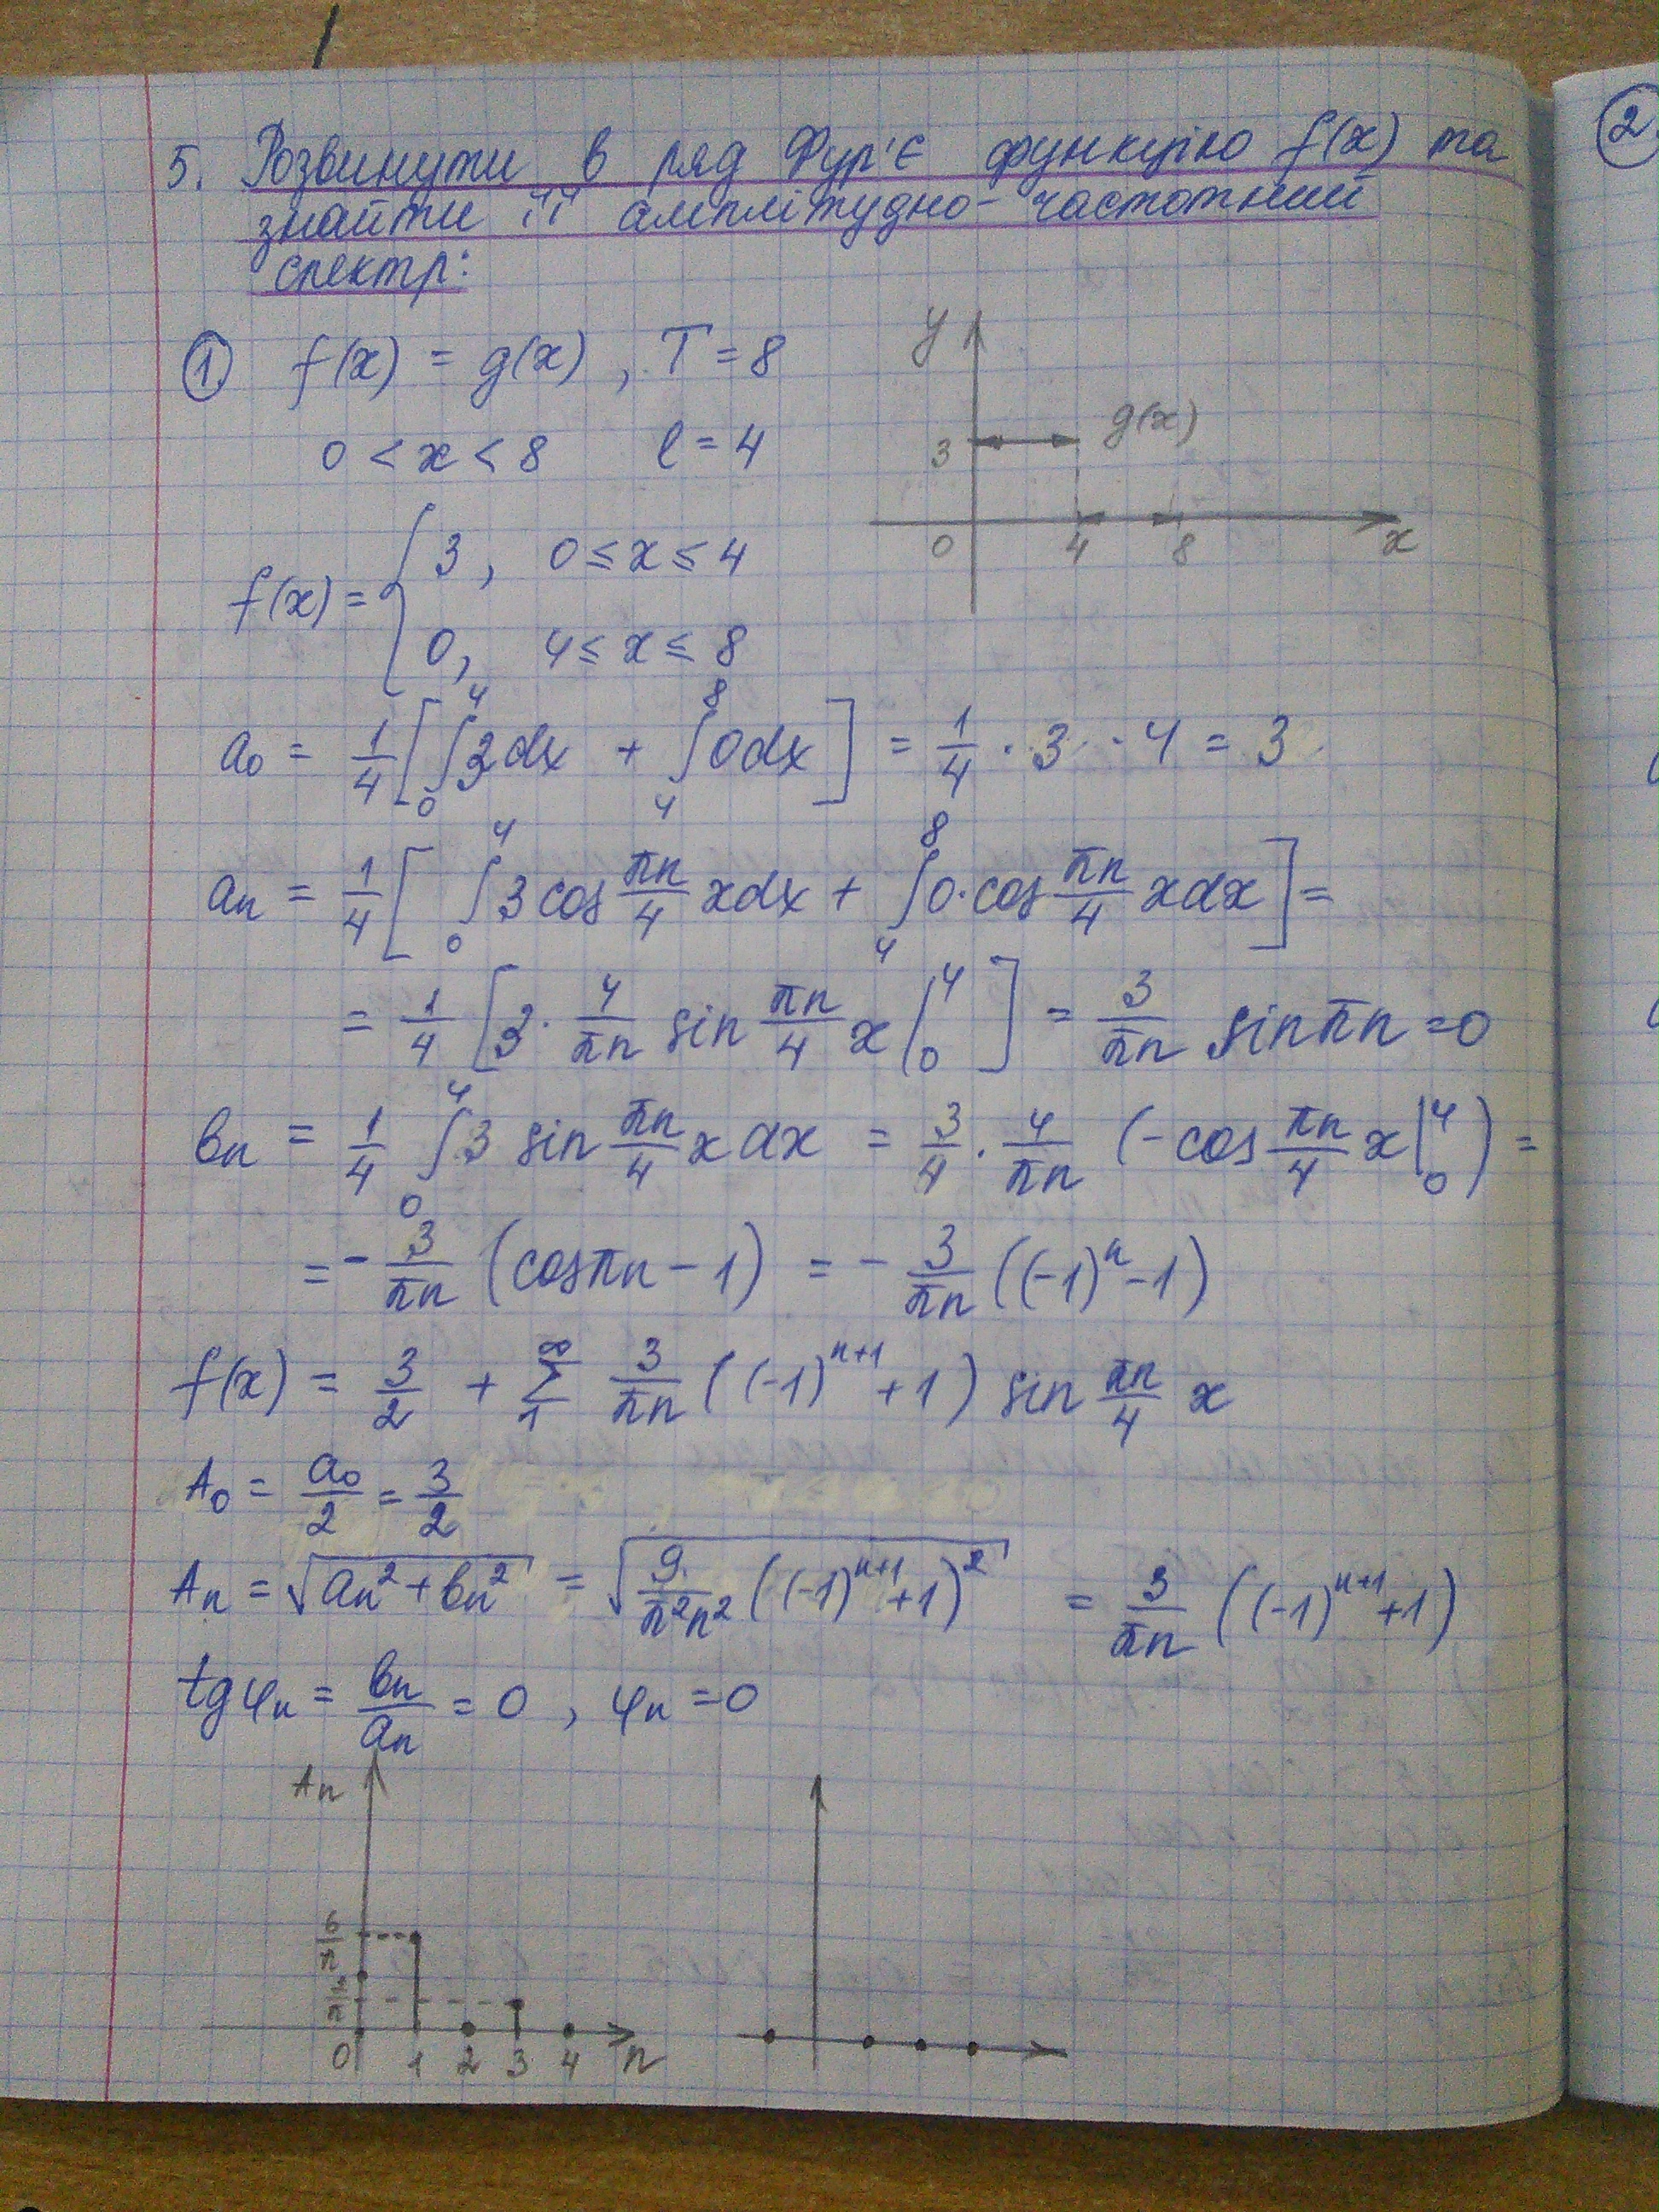 5. Розвинути в ряд Фур'є функцію f(x) та
знайти її амплітудно-частотний
спектр:
2
① f(x) = g(x), T = 8
0 < x < 8 l = 4
y
g(x)
3
0 4 8 x
f(x) = { 3, 0 ≤ x ≤ 4
0, 4 ≤ x ≤ 8
a₀ = 1/4 [∫₀⁴ 3dx + ∫₄⁸ 0dx] = 1/4 · 3 · 4 = 3
aₙ = 1/4 [∫₀⁴ 3 cos πn/4 x dx + ∫₄⁸ 0 · cos πn/4 x dx] =
= 1/4 [3 · 4/πn sin πn/4 x |₀⁴] = 3/πn sin πn = 0
bₙ = 1/4 ∫₀⁴ 3 sin πn/4 x dx = 3/4 · 4/πn (-cos πn/4 x |₀⁴) =
= - 3/πn (cos πn - 1) = - 3/πn ((-1)ⁿ - 1)
f(x) = 3/2 + Σ₁^∞ 3/πn ((-1)ⁿ⁺¹ + 1) sin πn/4 x
A₀ = a₀/2 = 3/2
Aₙ = √(aₙ² + bₙ²) = √(9/π²n² ((-1)ⁿ⁺¹ + 1)²) = 3/πn ((-1)ⁿ⁺¹ + 1)
tg φₙ = bₙ/aₙ = 0, φₙ = 0
Aₙ
6/π
0 1 2 3 4 n